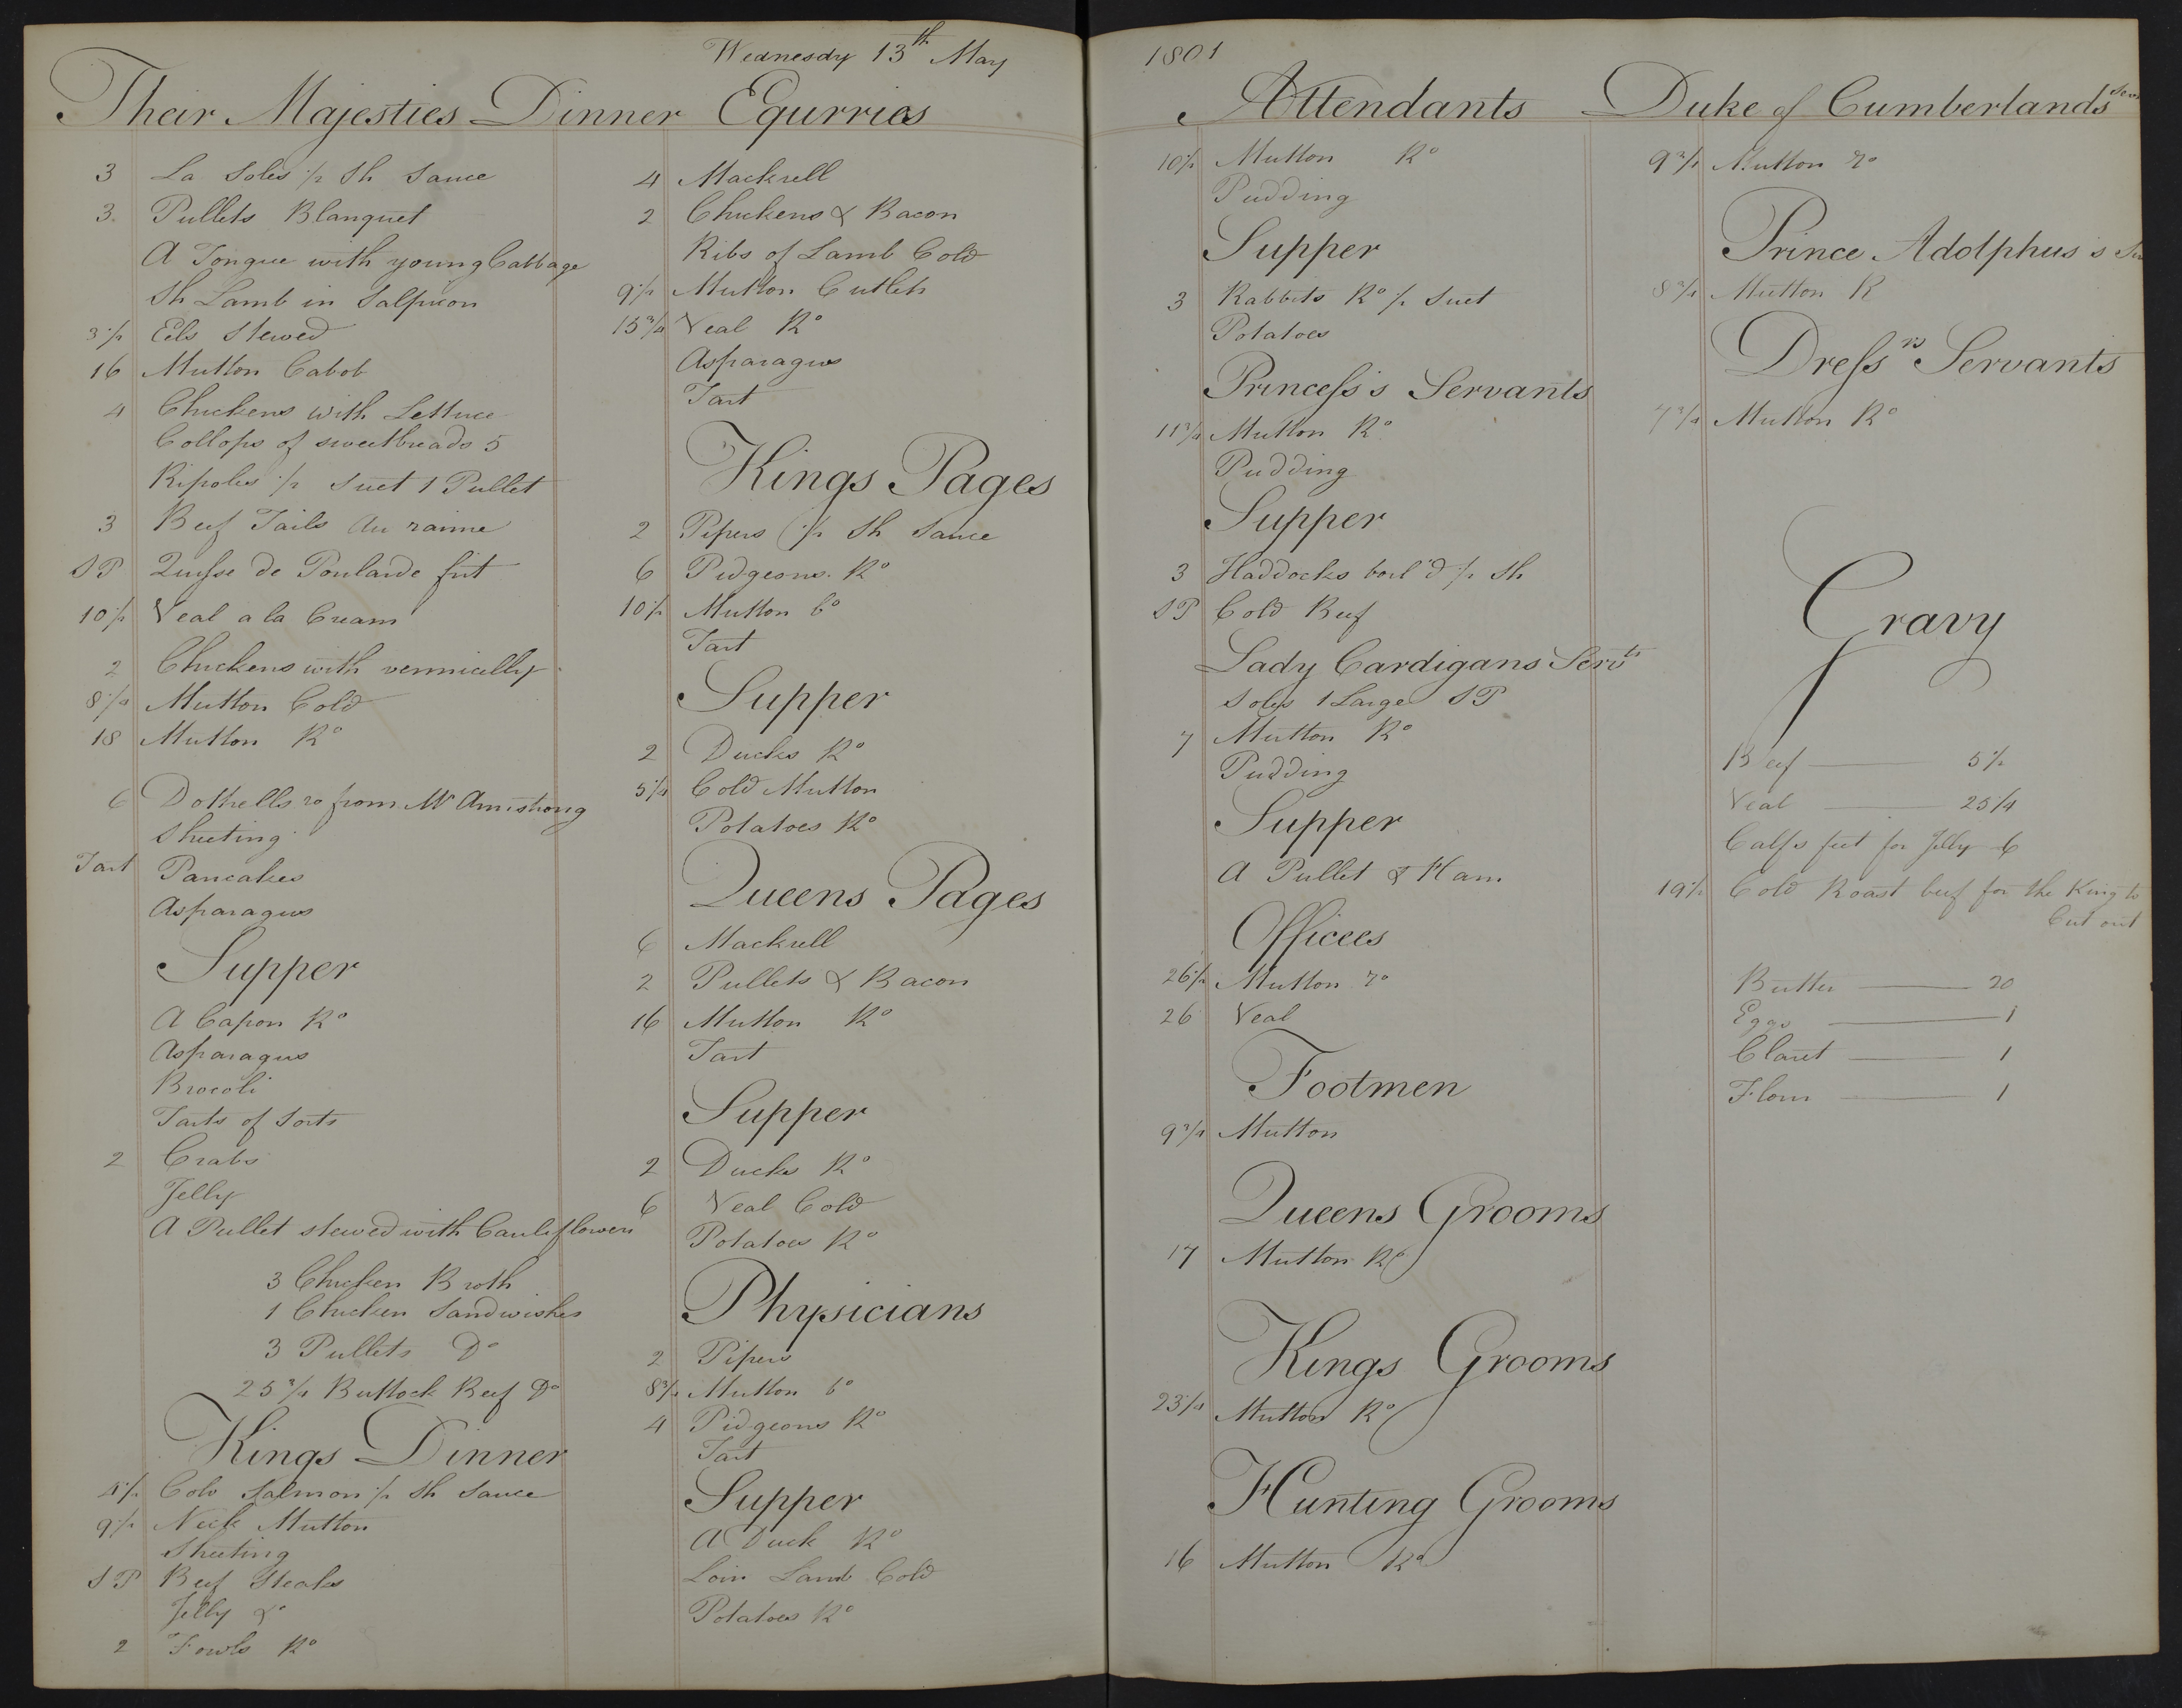 Wednesdy 13th May
Their Majesties Dinner
3 La Soles 1/2 Sh Sauce
3 Pullets Blanquet
A Tongue with young Cabbage
Sh Lamb in Salpicon
3 1/2 Eels Stewed
16 Mutton Cabob
4 Chickens with Lettuce
Collops of sweetbreads 5
1/2 Suet 1 Pullet
3 Beef Tails Au
SP de Poularde
10 1/2 Veal a la Cream
2 Chickens with vermicelly
8 1/4 Mutton Cold
18 Mutton Ro
6 Dotrells ro from Mr Armstrong
Sheeting
Tart Pancakes
Asparagus
Supper
A Capon Ro
Asparagus
Brocoli
Tarts of Sorts
2 Crabs
Jelly
A Pullet stewed with Cauliflowers
3 Chicken Broth
1 Chicken Sandwishes
3 Pullets Do
25 3/4 Buttock Beef Do
Kings Dinner
Cold Salmon 1/2 Sh Sauce
9 1/2 Neck Mutton
Sheeting
SP Beef Steaks
Jelly &c
2 Fowls Ro
Equrries
4 Mackrell
2 Chickens & Bacon
Ribs of Lamb Cold
9 1/2 Mutton Cutlets
15 3/4 Veal Ro
Asparagus
Tart
Kings Pages
2 Pipers 1/2 Sh Sauce
6 Pidgeons Ro
10 1/2 Mutton bo
Tart
Supper
2 Ducks Ro
5 1/4 Cold Mutton
Potatoes Ro
Queens Pages
6 Mackrell
2 Pullets & Bacon
16 Mutton Ro
Tart
Supper
2 Ducks Ro
6 Veal Cold
Potatoes Ro
Physicians
2 Pipers
8 3/4 Mutton bo
4 Pidgeons Ro
Tart
Supper
A Duck Ro
Loin Lamb Cold
Potatoes Ro
1801
Attendants
10 1/2 Mutton Ro
Pudding
Supper
3 Rabbits Ro 1/2 Suet
Potatoes
Princess's Servants
11 3/4 Mutton Ro
Pudding
Supper
3 Haddocks boil'd 1/2 Sh
SP Cold Beef
Lady Cardigans Servts
Soles 1 Large SP
7 Mutton Ro
Pudding
Supper
A Pullet & Ham
Offices
26 1/2 Mutton ro
26 Veal
Footmen
9 3/4 Mutton
Queens Grooms
17 Mutton Ro
Kings Grooms
23 1/4 Mutton Ro
Hunting Grooms
16 Mutton Ro
Duke of Cumberlands
9 3/4 Mutton ro
Prince Adolphus's
8 3/4 Mutton R
Dressrs Servants
7 3/4 Mutton Ro
Gravy
Beef 5 1/2
Veal 25 1/4
Calfs feet for Jelly 6
19 1/2 Cold Roast beef for the King to
Cut out
Butter 20
Eggs 1
Claret 1
Flour 1